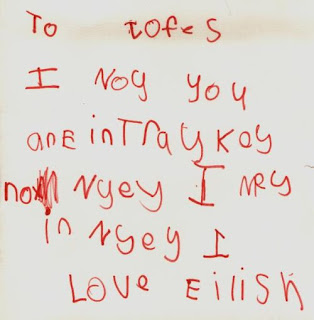 To tofes
I Noy you
anE inTray Key
now Nyey I MRy
in Nyey I
Love Eilish